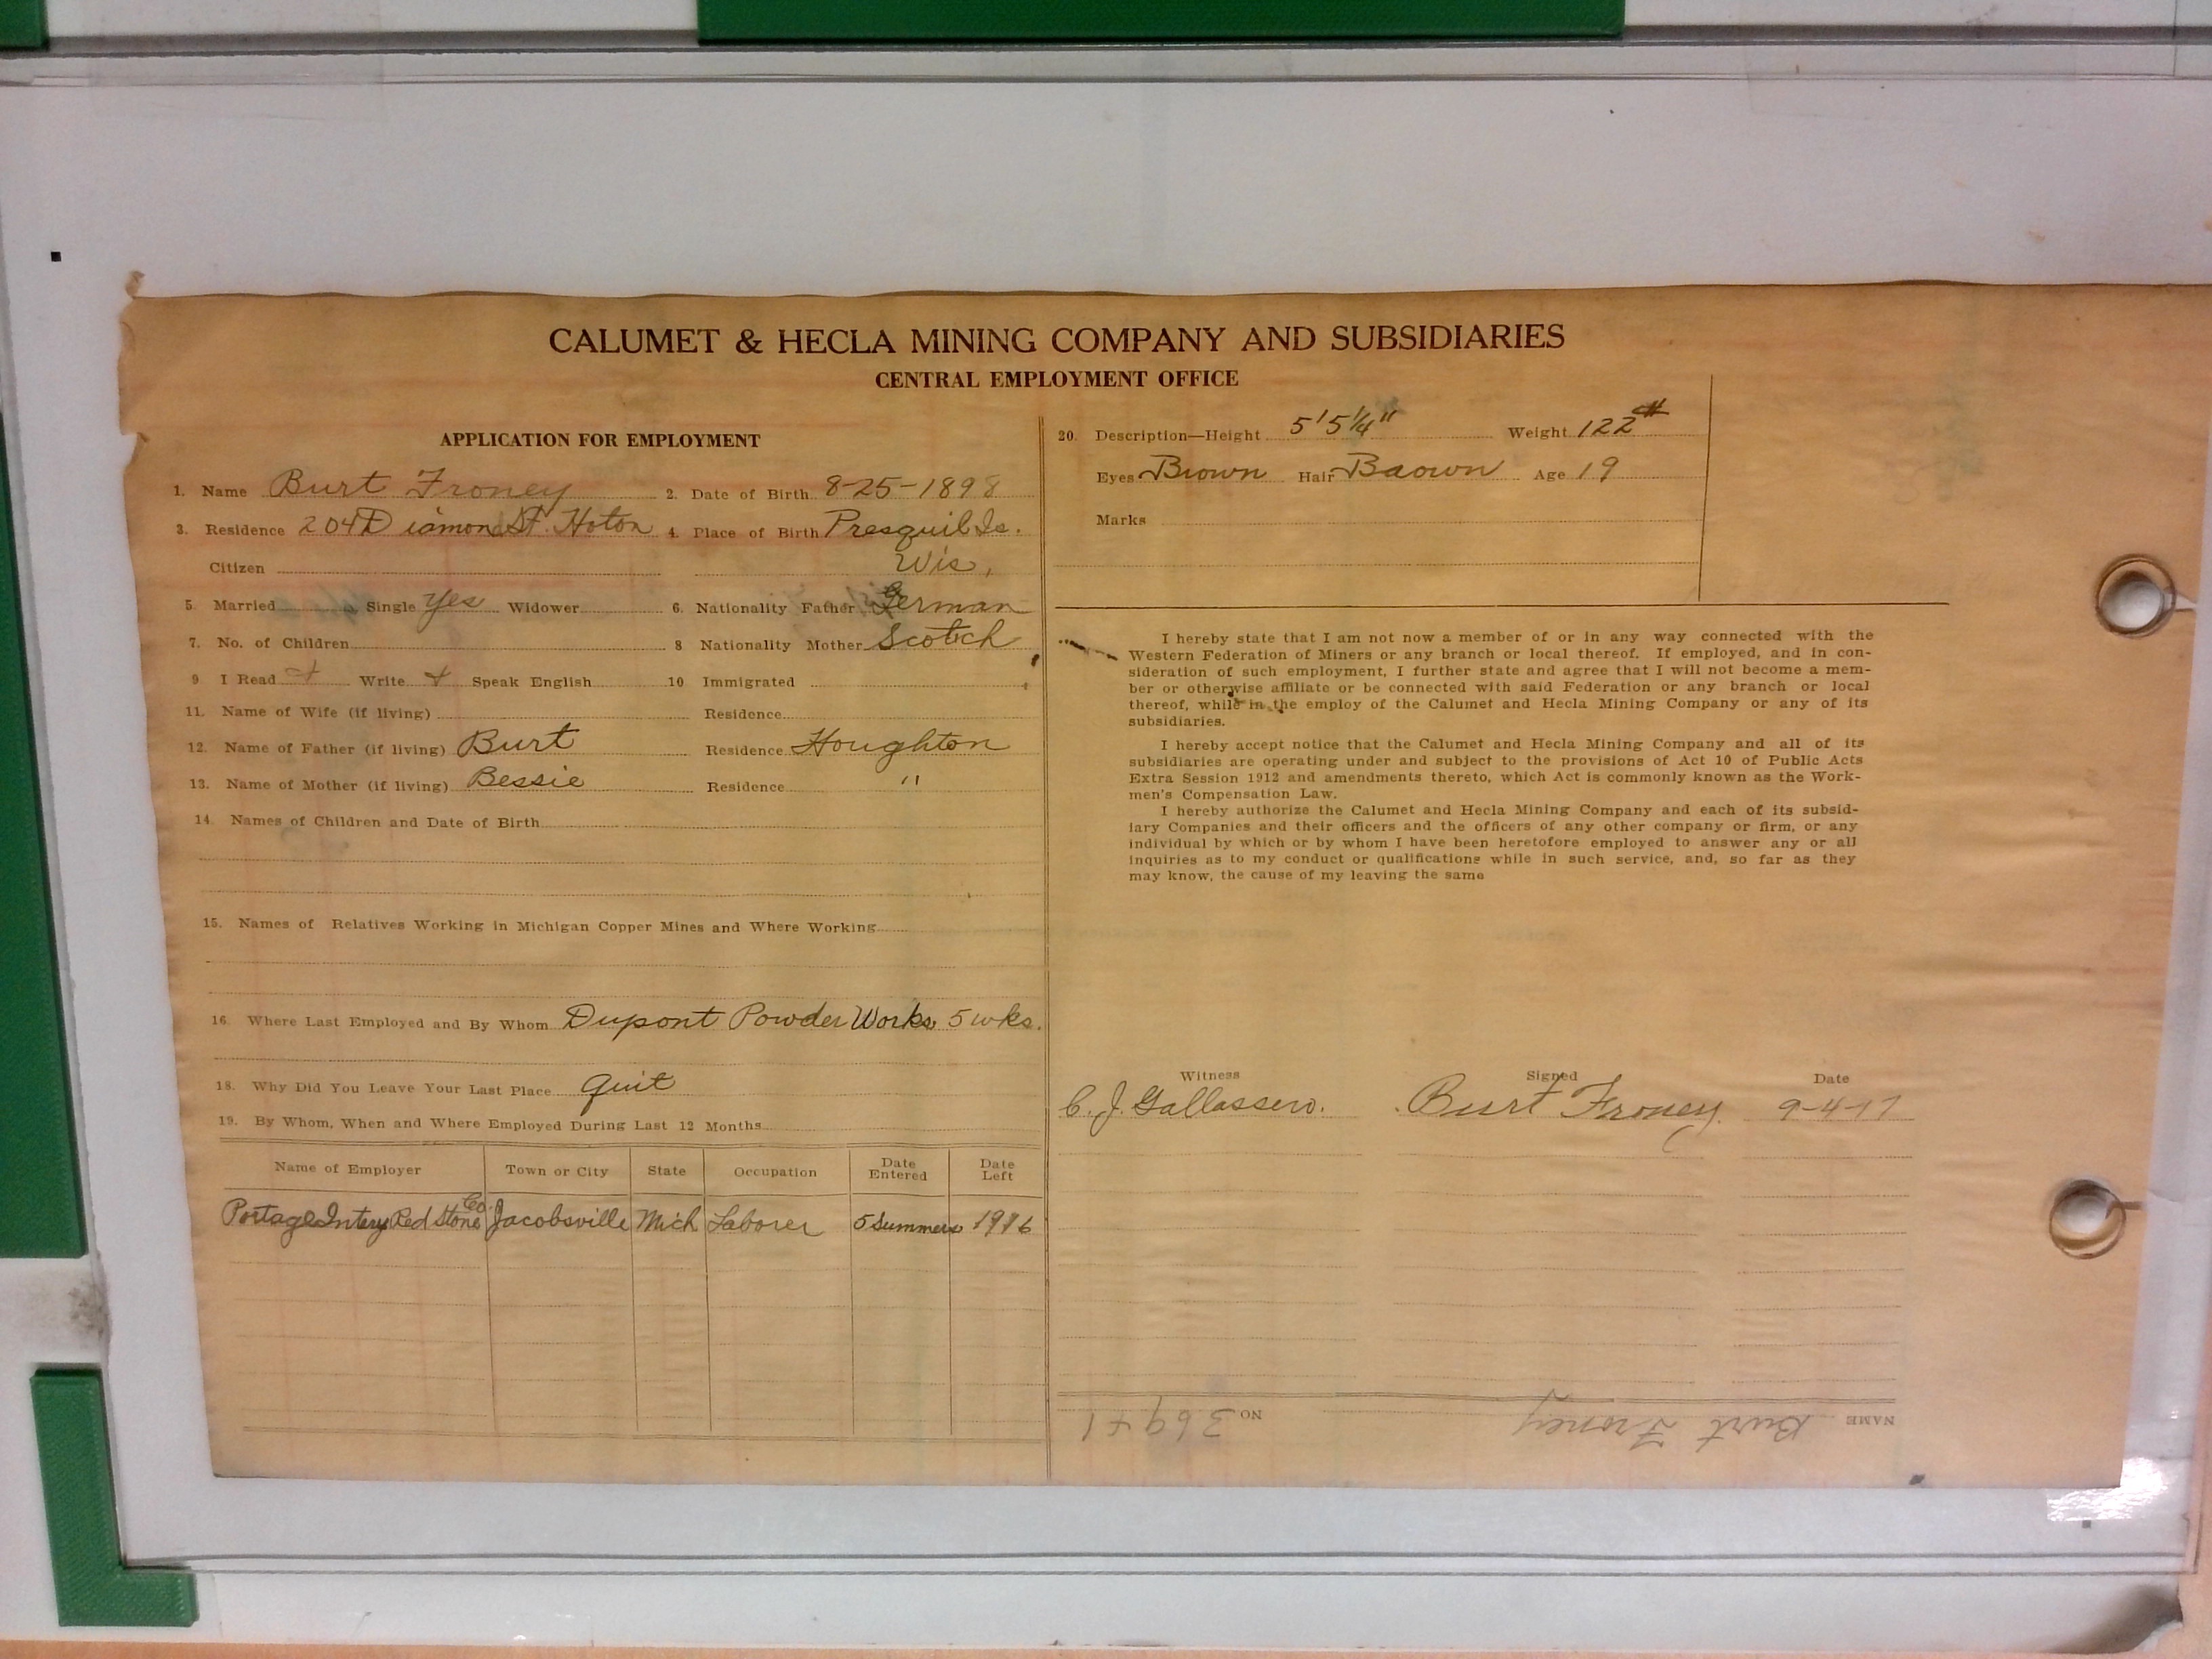 CALUMET & HECLA MINING COMPANY AND SUBSIDIARIES
CENTRAL EMPLOYMENT OFFICE
APPLICATION FOR EMPLOYMENT
1. Name Burt Froney 2. Date of Birth 8-25-1898
3. Residence 204 Diamond St. Hoton 4. Place of Birth Presquil Is.
Citizen Wis,
5 Married Single Yes Widower 6. Nationality Father German
7. No. of Children 8 Nationality Mother Scotch
9 I Read + Write + Speak English 10 Immigrated
11. Name of Wife (if living) Residence
12. Name of Father (if living) Burt Residence Houghton
13. Name of Mother (if living) Bessie Residence "
14. Names of Children and Date of Birth
15. Names of Relatives Working in Michigan Copper Mines and Where Working
16. Where Last Employed and By Whom Dupont Powder Works 5 wks.
18. Why Did You Leave Your Last Place Quit
19. By Whom, When and Where Employed During Last 12 Months
Name of Employer Town or City State Occupation Date Entered Date Left
Portage Red Stone Co. Jacobsville Mich Laborer 5 Summers 1916
20. Description—Height 5' 5 1/4" Weight 122 #
Eyes Brown Hair Baown Age 19
Marks
I hereby state that I am not now a member of or in any way connected with the
Western Federation of Miners or any branch or local thereof. If employed, and in con-
sideration of such employment, I further state and agree that I will not become a mem-
ber or otherwise affiliate or be connected with said Federation or any branch or local
thereof, while in the employ of the Calumet and Hecla Mining Company or any of its
subsidiaries.
I hereby accept notice that the Calumet and Hecla Mining Company and all of its
subsidiaries are operating under and subject to the provisions of Act 10 of Public Acts
Extra Session 1912 and amendments thereto, which Act is commonly known as the Work-
men's Compensation Law.
I hereby authorize the Calumet and Hecla Mining Company and each of its subsid-
iary Companies and their officers and the officers of any other company or firm, or any
individual by which or by whom I have been heretofore employed to answer any or all
inquiries as to my conduct or qualifications while in such service, and, so far as they
may know, the cause of my leaving the same
Witness Signed Date
C. J. Gallassero. Burt Froney. 9-4-17
NAME Burt Froney NO